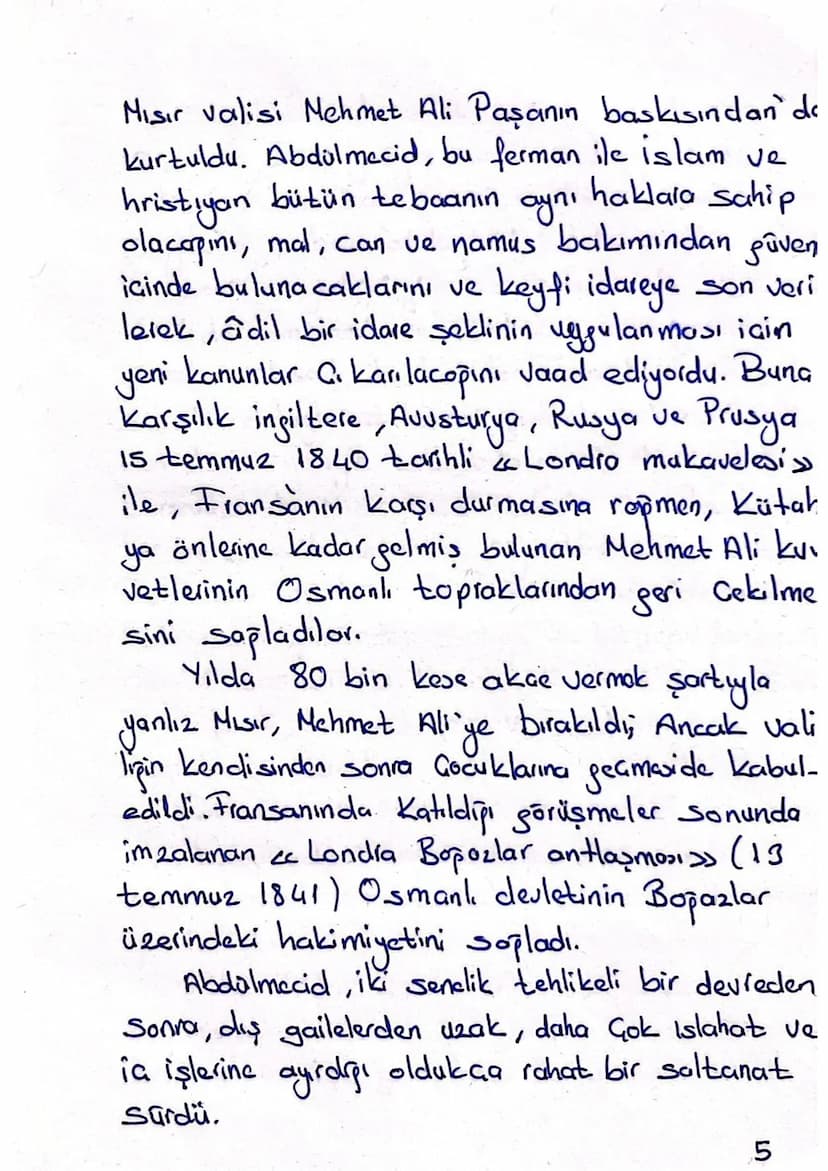 Mısır valisi Mehmet Ali Paşanın baskısından'da
kurtuldu. Abdülmecid, bu ferman ile islam ve
hristiyan bütün tebaanın aynı haklara sahip
olacağını, mal, can ve namus bakımından güven
içinde buluna caklarını ve keyfi idareye son veri
lerek, âdil bir idare şeklinin uygulanması için
yeni kanunlar Çı karılacağını vaad ediyordu. Buna
Karşılık ingiltere, Avusturya, Rusya ve Prusya
15 temmuz 1840 tarihli « Londra makavelesi »
ile, Fransànın karşı durmasına rağmen, Kütah
ya önlerine kadar gelmiş bulunan Mehmet Ali kuv
vetlerinin Osmanlı topraklarından geri Çekilme
sini sağladılar.
Yılda 80 bin kese akçe vermek şartıyla
yanlız Mısır, Mehmet Ali'ye bırakıldı; Ancak vali
liğin kendisinden sonra Çocuklarına geçmeside kabul-
edildi. Fransanında Katıldığı görüşmeler sonunda
imzalanan « Londra Boğazlar antlaşması » (13
temmuz 1841) Osmanlı devletinin Boğazlar
üzerindeki hakimiyetini sağladı.
Abdülmecid, iki senelik tehlikeli bir devreden
Sonra, dış gailelerden uzak, daha Çok ıslahat ve
iç işlerine ayırdığı oldukça rahat bir saltanat
Sürdü.
5